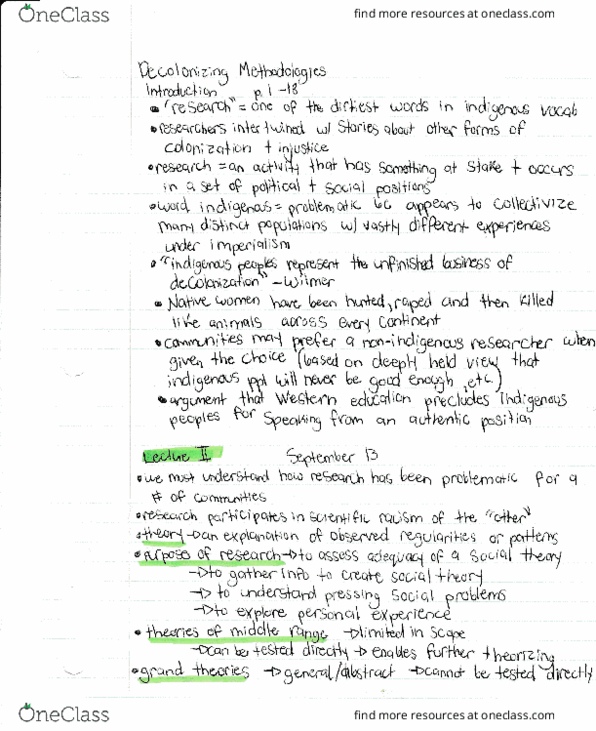 OneClass
find more resources at oneclass.com
Decolonizing Methodologies
Introduction p. 1 -18
• "research" = one of the dirtiest words in indigenous vocab
• researchers intertwined w/ stories about other forms of
colonization + injustice
• research = an activity that has something at stake + occurs
in a set of political + social positions
• word indigenous = problematic bc appears to collectivize
many distinct populations w/ vastly different experiences
under imperialism
• "indigenous peoples represent the unfinished business of
decolonization" - Wilmer
• Native women have been hunted, raped and then killed
like animals across every continent
• communities may prefer a non-indigenous researcher when
given the choice (based on deeply held view that
indigenous ppl will never be good enough, etc)
• argument that Western education precludes Indigenous
peoples for speaking from an authentic position
Lecture II September 13
• we must understand how research has been problematic for a
# of communities
• research participates in scientific racism of the "other"
• theory → an explanation of observed regularities or patterns
• purpose of research → to assess adequacy of a social theory
→ to gather info to create social theory
→ to understand pressing social problems
→ to explore personal experience
• theories of middle range → limited in scope
→ can be tested directly → enables further theorizing
• grand theories → general/abstract → cannot be tested directly
OneClass
find more resources at oneclass.com